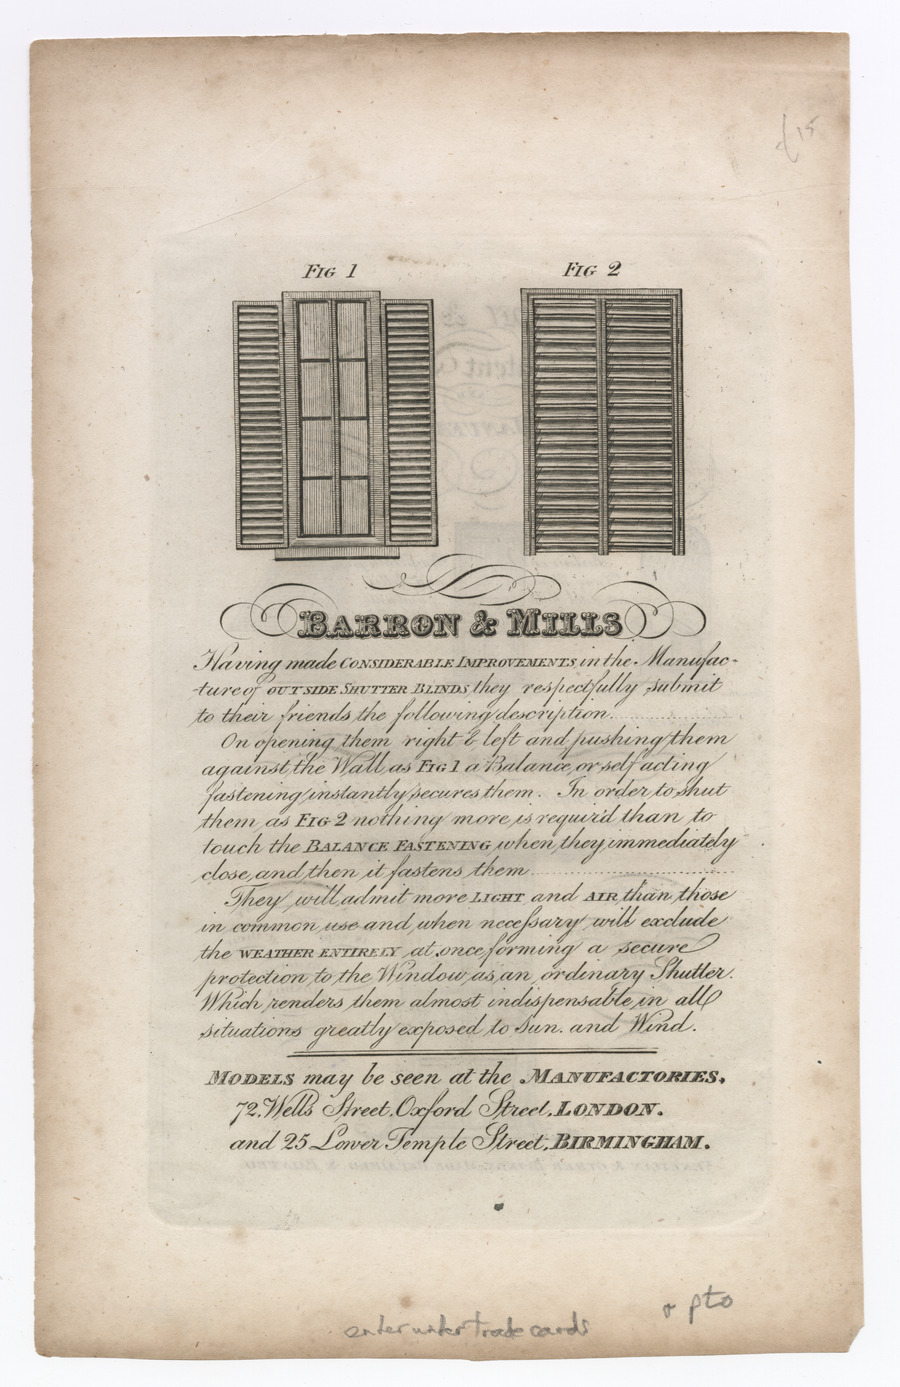 £15
FIG 1 FIG 2
BARRON & MILLS
Having made CONSIDERABLE IMPROVEMENTS in the Manufac-
-ture of OUTSIDE SHUTTER BLINDS they respectfully submit
to their friends the following description.
On opening them right & left and pushing them
against the Wall as FIG 1 a Balance, or self acting
fastening instantly secures them. In order to shut
them as FIG 2 nothing more is requir'd than to
touch the BALANCE FASTENING when they immediately
close, and then it fastens them
They will admit more LIGHT and AIR than those
in common use and when neceſsary will exclude
the WEATHER ENTIRELY at once forming a secure
protection to the Window as an ordinary Shutter.
Which renders them almost indispensable in all
situations greatly exposed to Sun. and Wind.
MODELS may be seen at the MANUFACTORIES,
72, Wells Street, Oxford Street, LONDON.
and 25 Lower Temple Street, BIRMINGHAM.
pto
enter under trade cards